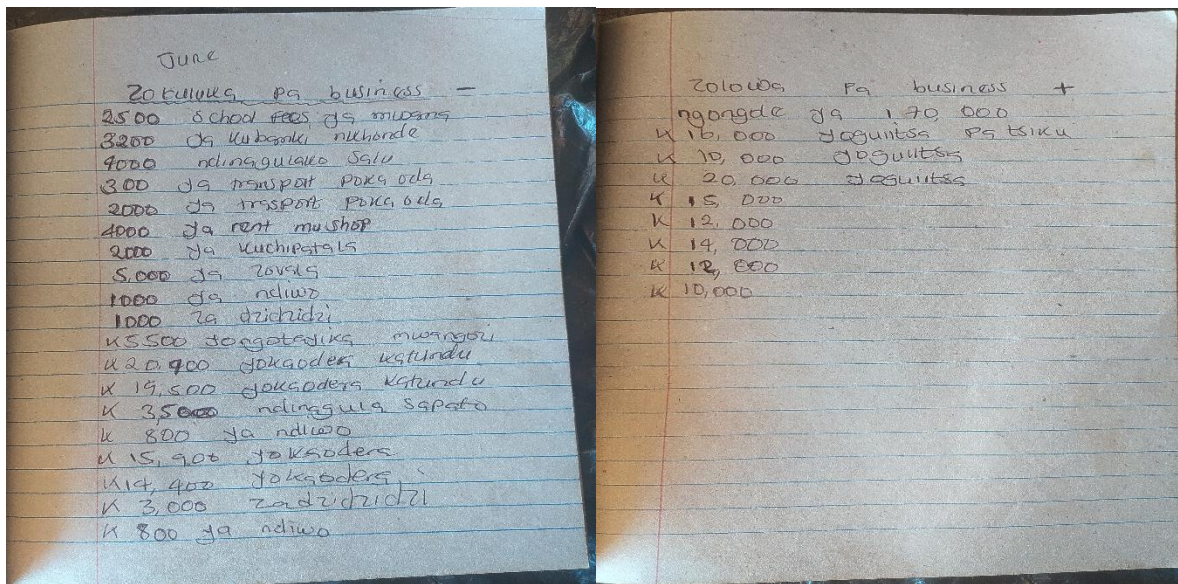 June
Zotuluka pa business -
2500 School fees ya mwana
3200 ya kubanki nkhonde
4000 ndinagulako Salu
300 ya transport poka oda
2000 ya trasport poka oda
4000 ya rent mu shop
2000 ya kuchipatala
5,000 ya zovala
1000 ya ndiwo
1000 za dzidzidzi
K5500 yongotayika mwangozi
K 20,900 yokaodera katundu
K 19,500 yokaodera katundu
K 3,5000 ndinagula sapato
K 800 ya ndiwo
K 15,900 yokaodera
K14,400 yokaodera
K 3,000 zadzidzidzi
K 800 ya ndiwo
Zolowa pa business +
ngongole ya 170,000
K 16,000 yogulitsa pa tsiku
K 10,000 yogulitsa
K 20,000 yogulitsa
K 15,000
K 12,000
K 14,000
K 12,000
K 10,000